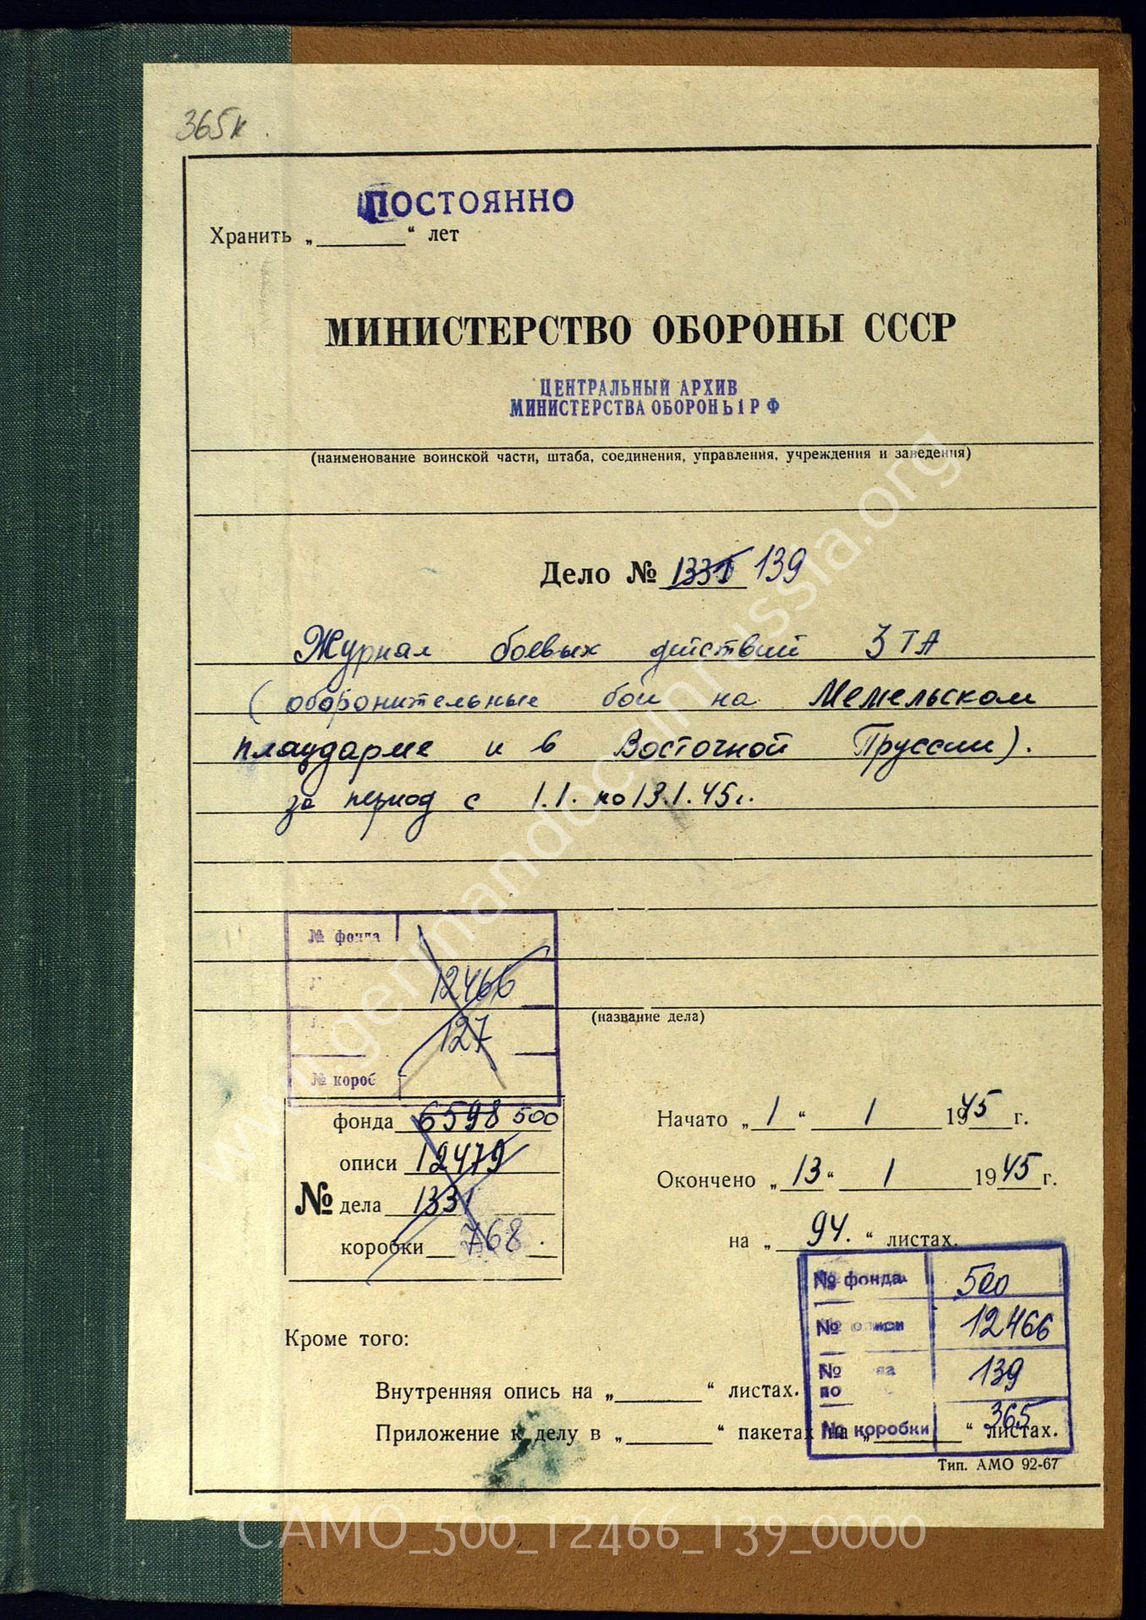 365к.
ПОСТОЯННО
Хранить „ “ лет
МИНИСТЕРСТВО ОБОРОНЫ СССР
ЦЕНТРАЛЬНЫЙ АРХИВ
МИНИСТЕРСТВА ОБОРОНЫ РФ
(наименование воинской части, штаба, соединения, управления, учреждения и заведения)
Дело № 1331 139
Журнал боевых действий 3 ТА
(оборонительные бои на Мемельском
плацдарме и в Восточной Пруссии).
за период с 1.1. по 13.1.45г.
№ фонда
12466
127
№ короб
(название дела)
фонда 6598 500
описи 12479
№ дела 1331
коробки 768.
Начато „1“ 1 1945 г.
Окончено „13“ 1 1945 г.
на „94.“ листах.
№ фонда 500
№ описи 12466
№ 139
по
№ коробки 365
Кроме того:
Внутренняя опись на „ “ листах.
Приложение к делу в „ “ пакетах на „ “ листах.
Тип. АМО 92-67
www.germandocsinrussia.org
CAMO_500_12466_139_0000